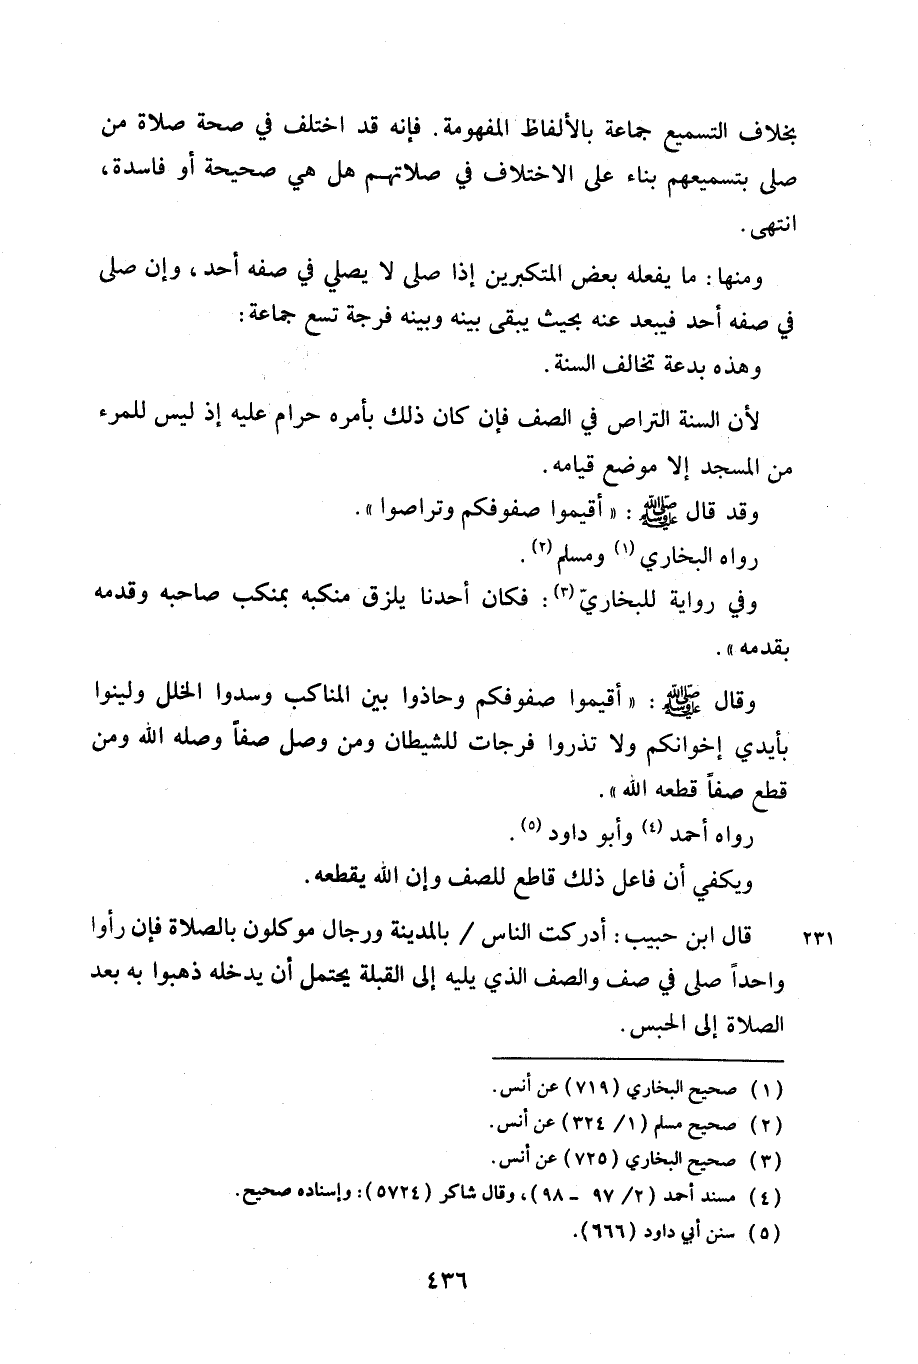 بخلاف التسميع جماعة بالألفاظ المفهومة. فإنه قد اختلف في صحة صلاة من
صلى بتسميعهم بناء على الاختلاف في صلاتهم هل هي صحيحة أو فاسدة،
انتهى.
ومنها: ما يفعله بعض المتكبرين إذا صلى لا يصلي في صفه أحد، وإن صلى
في صفه أحد فيبعد عنه بحيث يبقى بينه وبينه فرجة تسع جماعة:
وهذه بدعة تخالف السنة.
لأن السنة التراص في الصف فإن كان ذلك بأمره حرام عليه إذ ليس للمرء
من المسجد إلا موضع قيامه.
وقد قال ﷺ: «أقيموا صفوفكم وتراصوا».
رواه البخاري (١) ومسلم (٢).
وفي رواية للبخاريّ (٣): فكان أحدنا يلزق منكبه بمنكب صاحبه وقدمه
بقدمه».
وقال ﷺ: «أقيموا صفوفكم وحاذوا بين المناكب وسدوا الخلل ولينوا
بأيدي إخوانكم ولا تذروا فرجات للشيطان ومن وصل صفاً وصله الله ومن
قطع صفاً قطعه الله».
رواه أحمد (٤) وأبو داود (٥).
ويكفي أن فاعل ذلك قاطع للصف وإن الله يقطعه.
٢٣١ قال ابن حبيب: أدركت الناس / بالمدينة ورجال موكلون بالصلاة فإن رأوا
واحداً صلى في صف والصف الذي يليه إلى القبلة يحتمل أن يدخله ذهبوا به بعد
الصلاة إلى الحبس.
(١) صحيح البخاري (٧١٩) عن أنس.
(٢) صحيح مسلم (١/ ٣٢٤) عن أنس.
(٣) صحيح البخاري (٧٢٥) عن أنس.
(٤) مسند أحمد (٢/ ٩٧ – ٩٨)، وقال شاكر (٥٧٢٤): وإسناده صحيح.
(٥) سنن أبي داود (٦٦٦).
٤٣٦